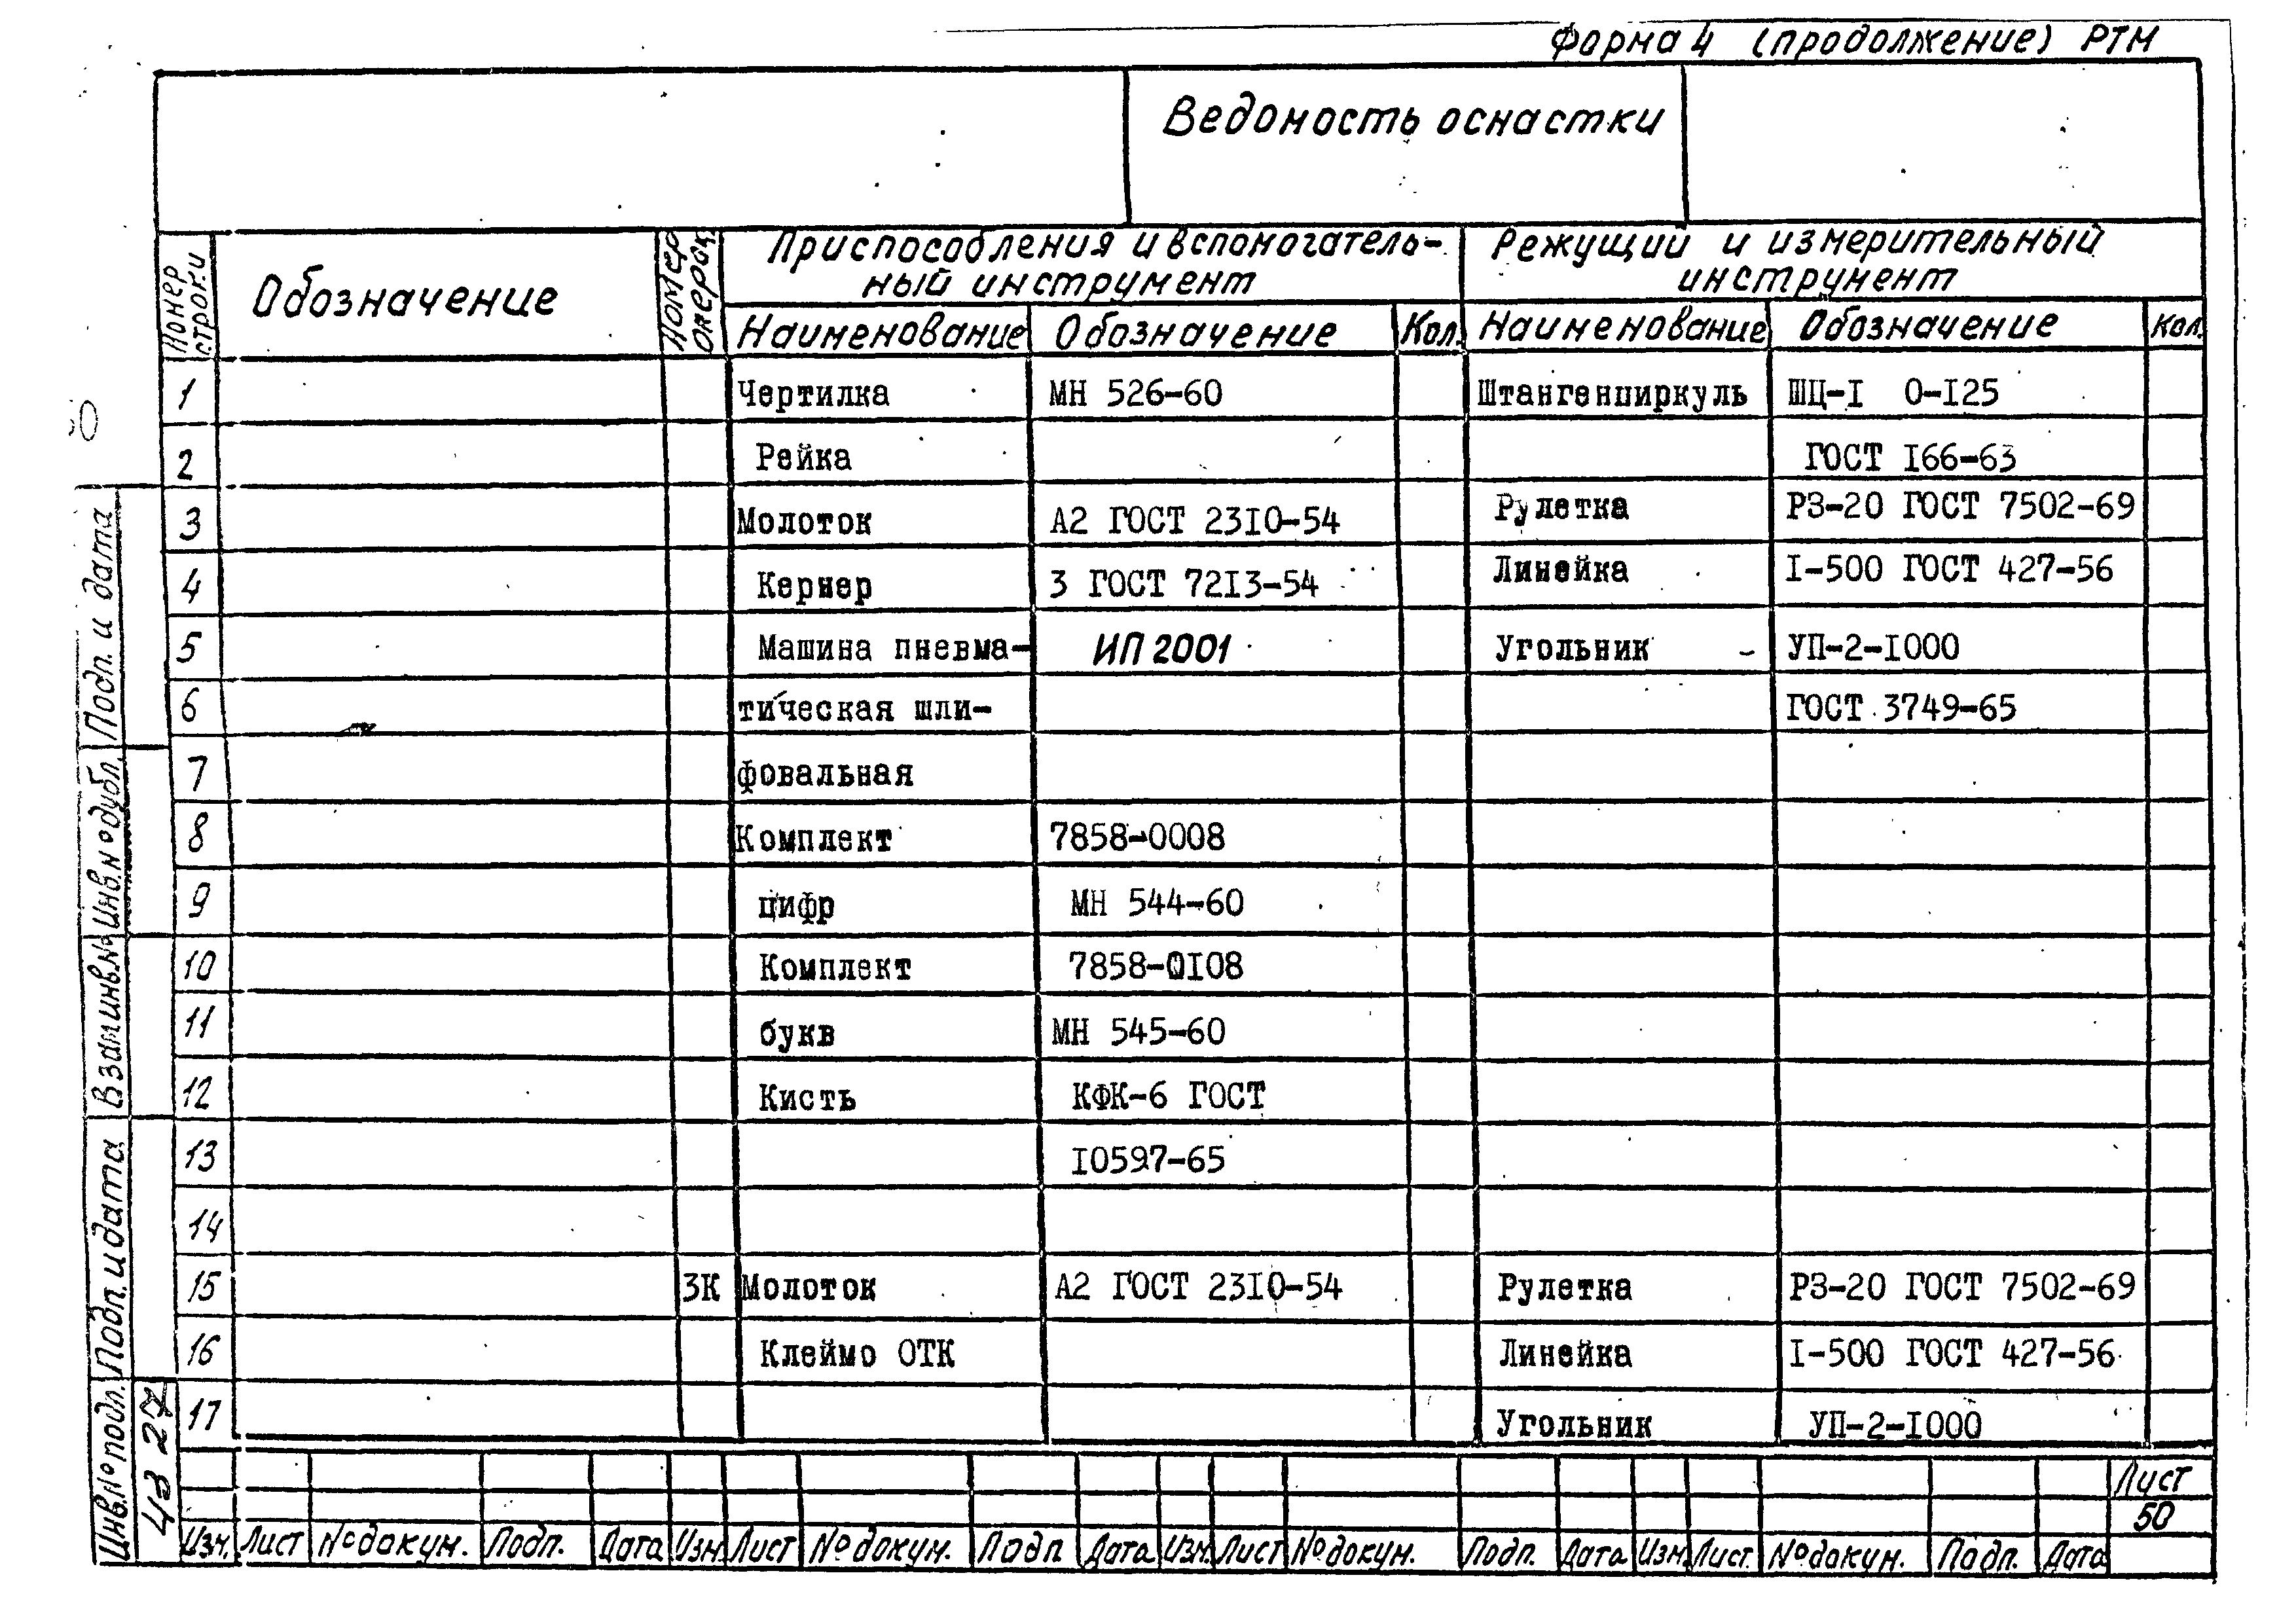 Форма 4 (продолжение) РТМ
Ведомость оснастки
Номер строки
Обозначение
Номер операц.
Приспособления и вспомогатель-
ный инструмент
Режущий и измерительный
инструмент
Наименование Обозначение Кол. Наименование Обозначение Кол.
1 Чертилка МН 526-60 Штангенциркуль ШЦ-I 0-I25
2 Рейка ГОСТ I66-63
3 Молоток А2 ГОСТ 23I0-54 Рулетка РЗ-20 ГОСТ 7502-69
4 Кернер 3 ГОСТ 72I3-54 Линейка I-500 ГОСТ 427-56
5 Машина пневма- ИП 2001 Угольник УП-2-I000
6 тическая шли- ГОСТ 3749-65
7 фовальная
8 Комплект 7858-0008
9 цифр МН 544-60
10 Комплект 7858-0I08
11 букв МН 545-60
12 Кисть КФК-6 ГОСТ
13 I0597-65
14
15 3К Молоток А2 ГОСТ 23I0-54 Рулетка РЗ-20 ГОСТ 7502-69
16 Клеймо ОТК Линейка I-500 ГОСТ 427-56
17 Угольник УП-2-I000
Лист
50
Изм. Лист № докум. Подп. Дата Изм Лист № докум. Подп Дата Изм. Лист № докум. Подп. Дата Изм Лист. № докум. Подп. Дата
Подп. и дата
Инв.№ дубл.
Взам.инв.№
Подп. и дата
Инв.№ подп.
43 27